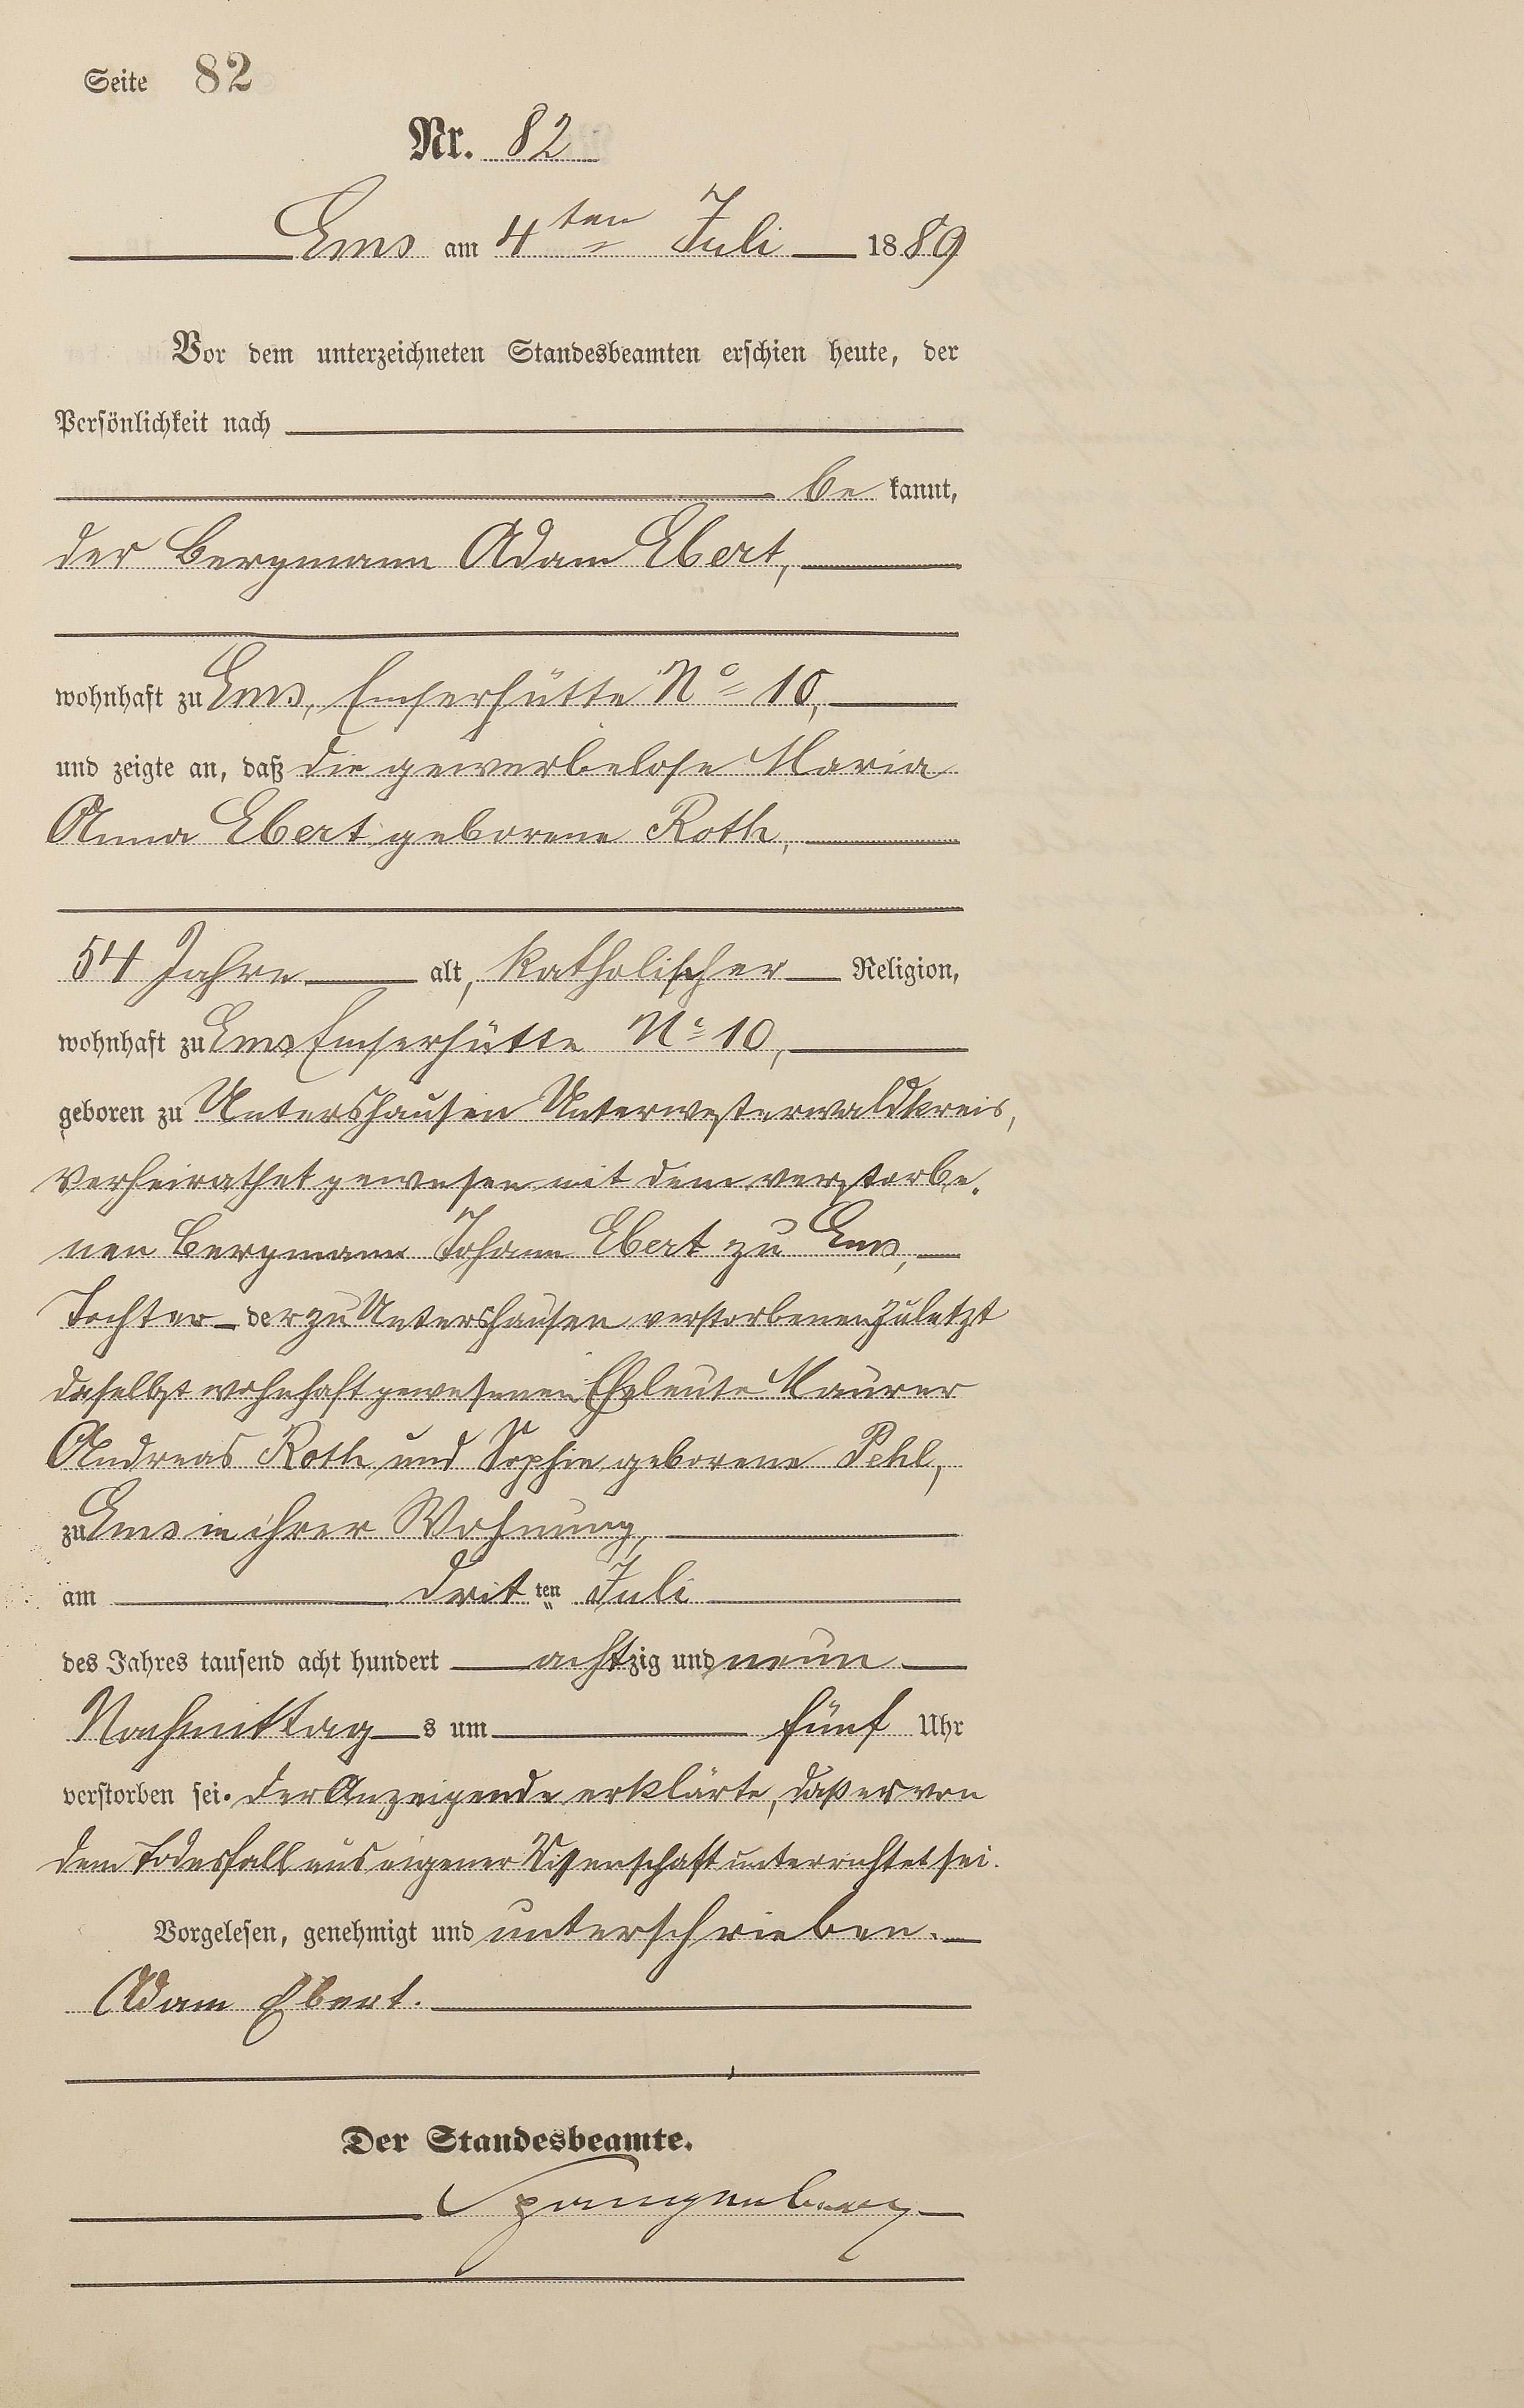 Seite 82
Nr. 82
Ems am 4ten Juli 1889
Vor dem unterzeichneten Standesbeamten erschien heute, der
Persönlichkeit nach
bekannt,
der Bergmann Adam Ebert,
wohnhaft zu Ems, Emserhütte No 10,
und zeigte an, daß die gewerbelose Maria
Anna Ebert geborene Roth,
54 Jahre alt, katholischer Religion,
wohnhaft zu Ems Emserhütte No 10,
geboren zu Untershausen Unterwesterwaldkreis,
verheirathet gewesen mit dem verstorbe-
nen Bergmann Johann Ebert zu Ems,
Tochter der zu Untershausen verstorbenen zuletzt
daselbst wohnhaft gewesenen Eheleute Maurer
Andreas Roth und Sophie geborene Pehl,
zu Ems in ihrer Wohnung,
am dritten Juli
des Jahres tausend acht hundert achtzig und neun
Nachmittags um fünf Uhr
verstorben sei. Der Anzeigende erklärte, daß er von
dem Todesfall aus eigener Wissenschaft unterrichtet sei.
Vorgelesen, genehmigt und unterschrieben.
Adam Ebert.
Der Standesbeamte.
Spangenberg